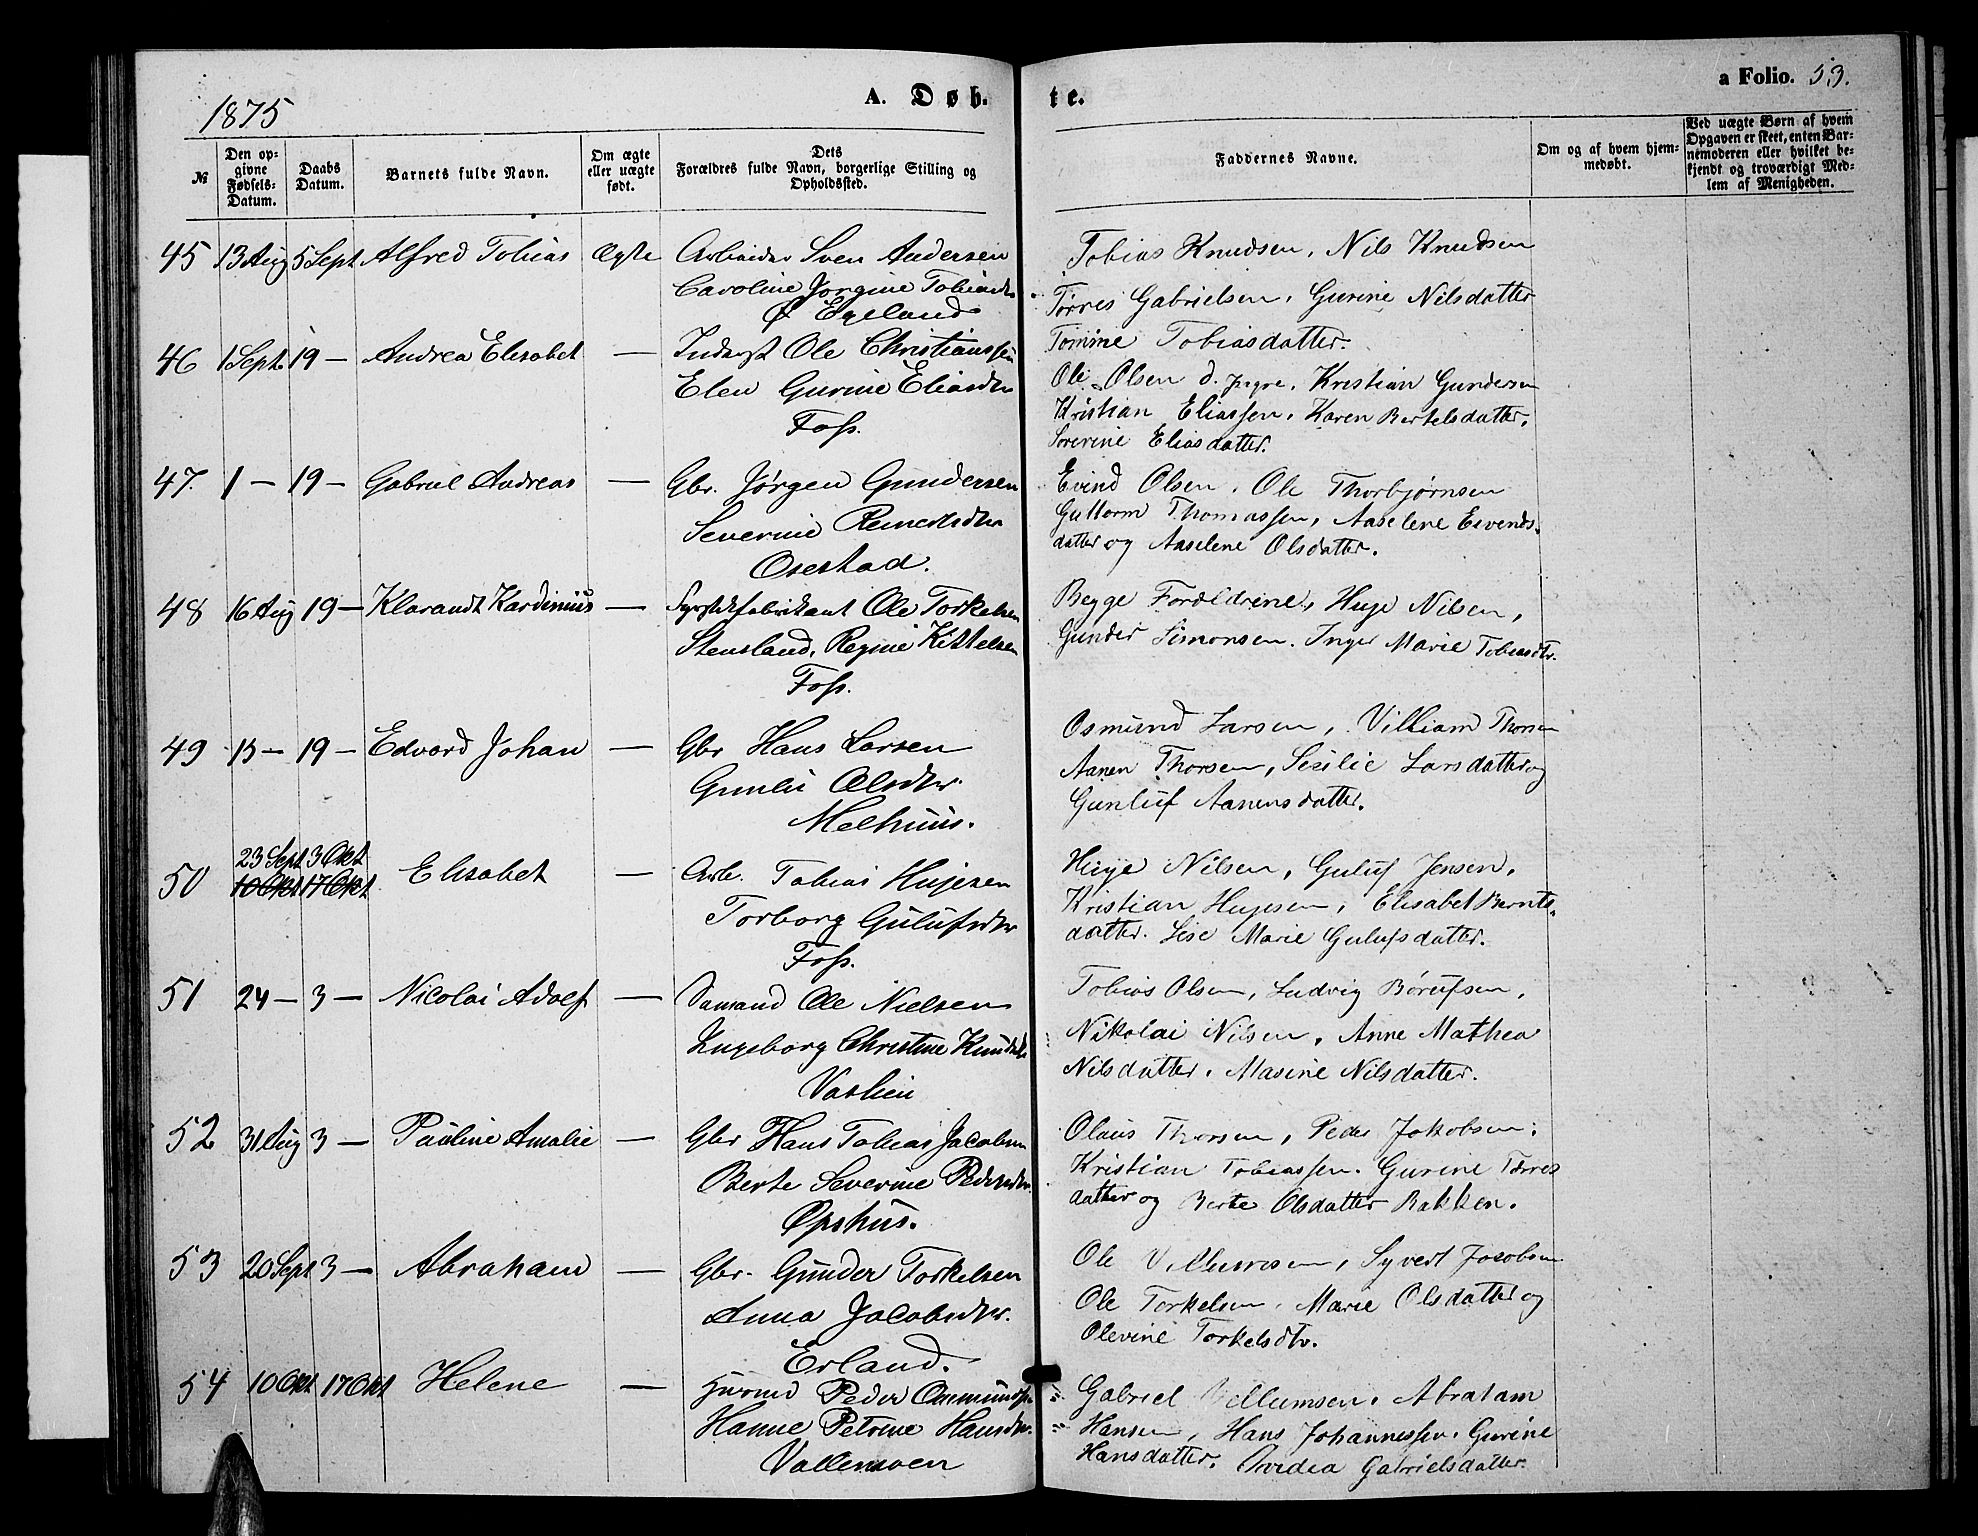 1875
A. Døb-
te.
a Folio. 53.
№
Den opgivne Fødsels-Datum.
Daabs Datum.
Barnets fulde Navn.
Om ægte eller uægte født.
Dets Forældres fulde Navn, borgerlige Stilling og Opholdssted.
Faddernes Navne.
Om og af hvem hjemmedøbt.
Ved uægte Børn af hvem Opgaven er skeet, enten Barnemoderen eller hvilket bekjendt og troværdigt Medlem af Menigheden.
45 13 Aug 5 Sept Alfred Tobias Ægte Arbeider Sven Andersen
Caroline Jorgine Tobiasdtr
Ø Egeland
Tobias Knudsen, Nils Knudsen
Tørres Gabrielsen, Gurine Nilsdatter
Tomine Tobiasdatter.
46 1 Sept. 19 — Andrea Elisabet — Inderst Ole Christianssen
Elen Gurine Eliasdtr
Foss.
Ole Olsen d. yngre, Kristian Gundersen
Kristian Eliassen, Karen Bertelsdatter,
Severine Eliasdatter.
47. 1 — 19 — Gabriel Andreas — Gbr. Jørgen Gundersen
Severine Reinertsdtr
Osestad.
Evind Olsen, Ole Thorbjørnsen
Guttorm Thomassen, Aaselene Eivends-
datter og Aaselene Olsdatter.
48 16 Aug 19 — Klarandt Kardinius — Fyrstikfabrikant Ole Torkelsen
Stensland, Regine Kittelsen
Foss.
Begge Forældrene, Huje Nilsen,
Gunder Simonsen. Inger Marie Tobiasdtr.
49 15 — 19 — Edvard Johan — Gbr Hans Larsen
Gunlei Olsdtr.
Melhuus.
Osmund Larsen, Villiam Thorsen
Aanen Thorsen, Sesilie Larsdatter og
Gunluf Aanensdatter.
50 23 Sept 3 Okt
10 Okt 17 Okt Elisabet — Arb. Tobias Hujesen
Torborg Gulufsdtr
Foss.
Huje Nilsen, Guluf Jensen,
Kristian Hujesen, Elisabet Bernts-
datter. Lise Marie Gulufsdatter.
51 24 — 3 — Nicolai Adolf — Sømand Ole Nielsen
Ingeborg Christine Knudsdtr
Vatlien
Tobias Olsen, Ludvig Børufsen,
Nikolai Nilsen, Anne Mathea
Nilsdatter, Masine Nilsdatter.
52 31 Aug 3 — Pauline Amalie — Gbr Hans Tobias Jacobsen
Berte Severine Pedersdtr.
Opshus.
Olaus Thorsen, Peder Jakobsen,
Kristian Tobiassen. Gurine Tørres
datter og Berte Olsdatter Bakken.
53 20 Sept 3 — Abraham — Gbr. Gunder Torkelsen
Anna Jacobsdtr.
Erland.
Ole Villumsen, Syvert Jacobsen
Ole Torkelsen, Marie Olsdatter og
Olevine Torkelsdtr.
54 10 Okt 17 Okt Helene — Peder Ommundsen
Hanne Petrine Hansdtr.
Vallemoen
Gabriel Villumsen, Abraham
Hansen, Hans Johannessen, Gurine
Hansdatter. Gabrielsdatter.